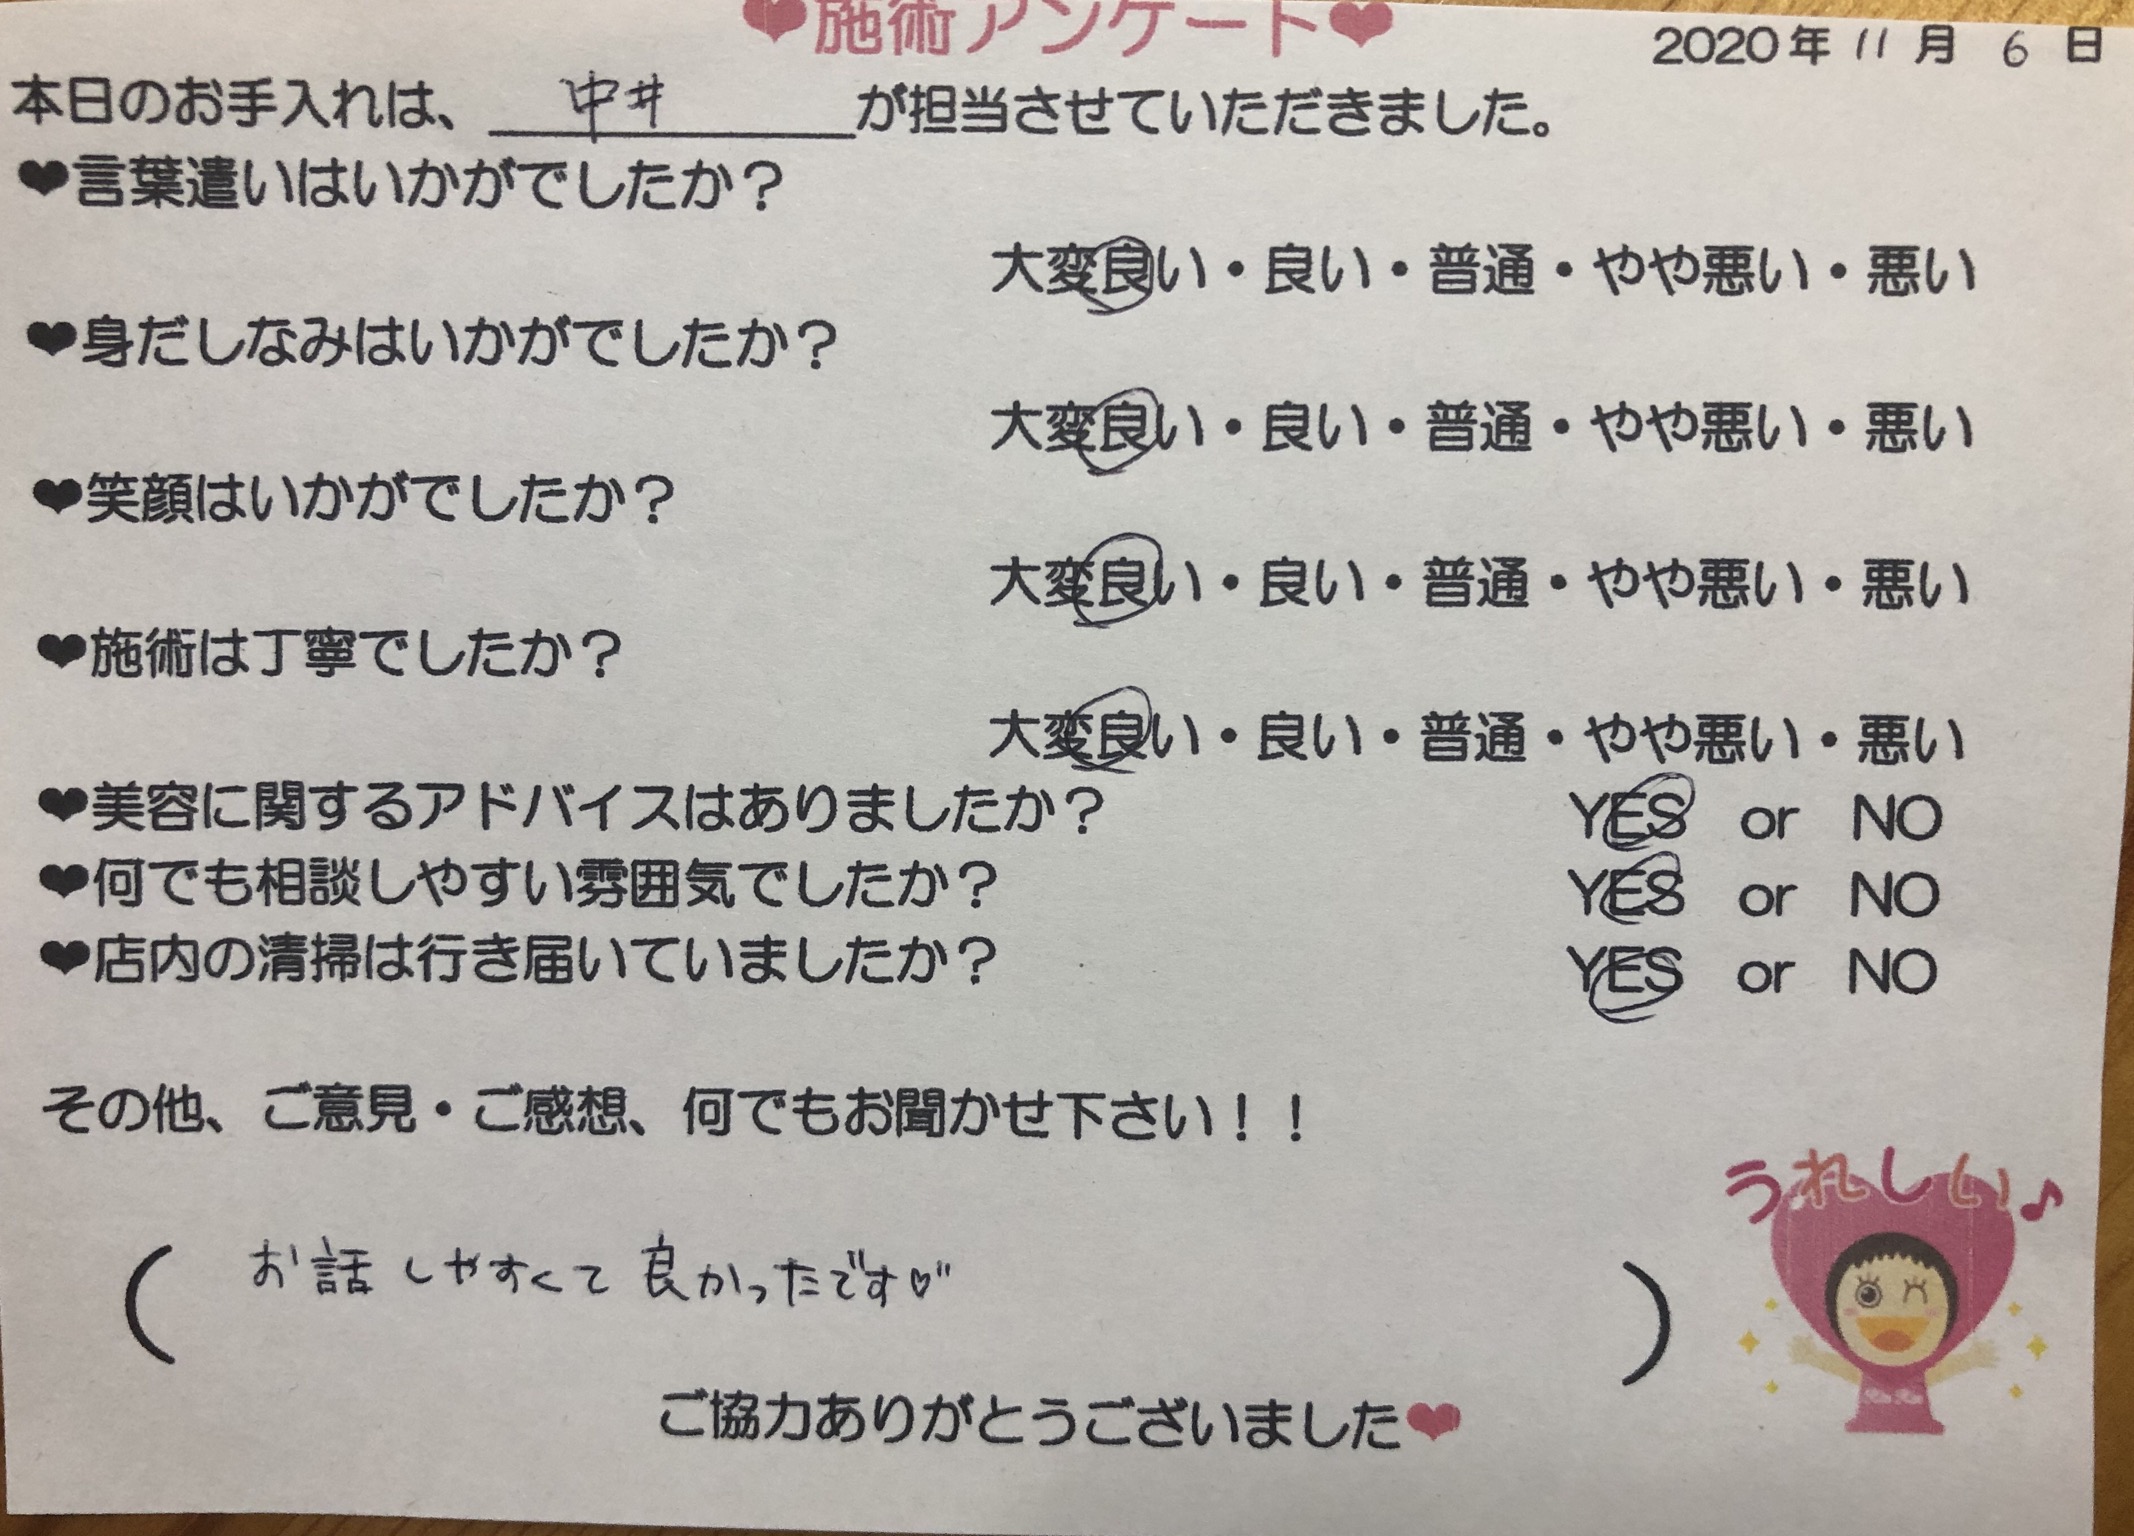 ❤施術アンケート❤
2020年 11月 6日
本日のお手入れは、 中井 が担当させていただきました。
❤言葉遣いはいかがでしたか？
大変良い・良い・普通・やや悪い・悪い
❤身だしなみはいかがでしたか？
大変良い・良い・普通・やや悪い・悪い
❤笑顔はいかがでしたか？
大変良い・良い・普通・やや悪い・悪い
❤施術は丁寧でしたか？
大変良い・良い・普通・やや悪い・悪い
❤美容に関するアドバイスはありましたか？ YES or NO
❤何でも相談しやすい雰囲気でしたか？ YES or NO
❤店内の清掃は行き届いていましたか？ YES or NO
その他、ご意見・ご感想、何でもお聞かせ下さい！！
うれしい♪
( お話しやすくて良かったです♡" )
ご協力ありがとうございました❤